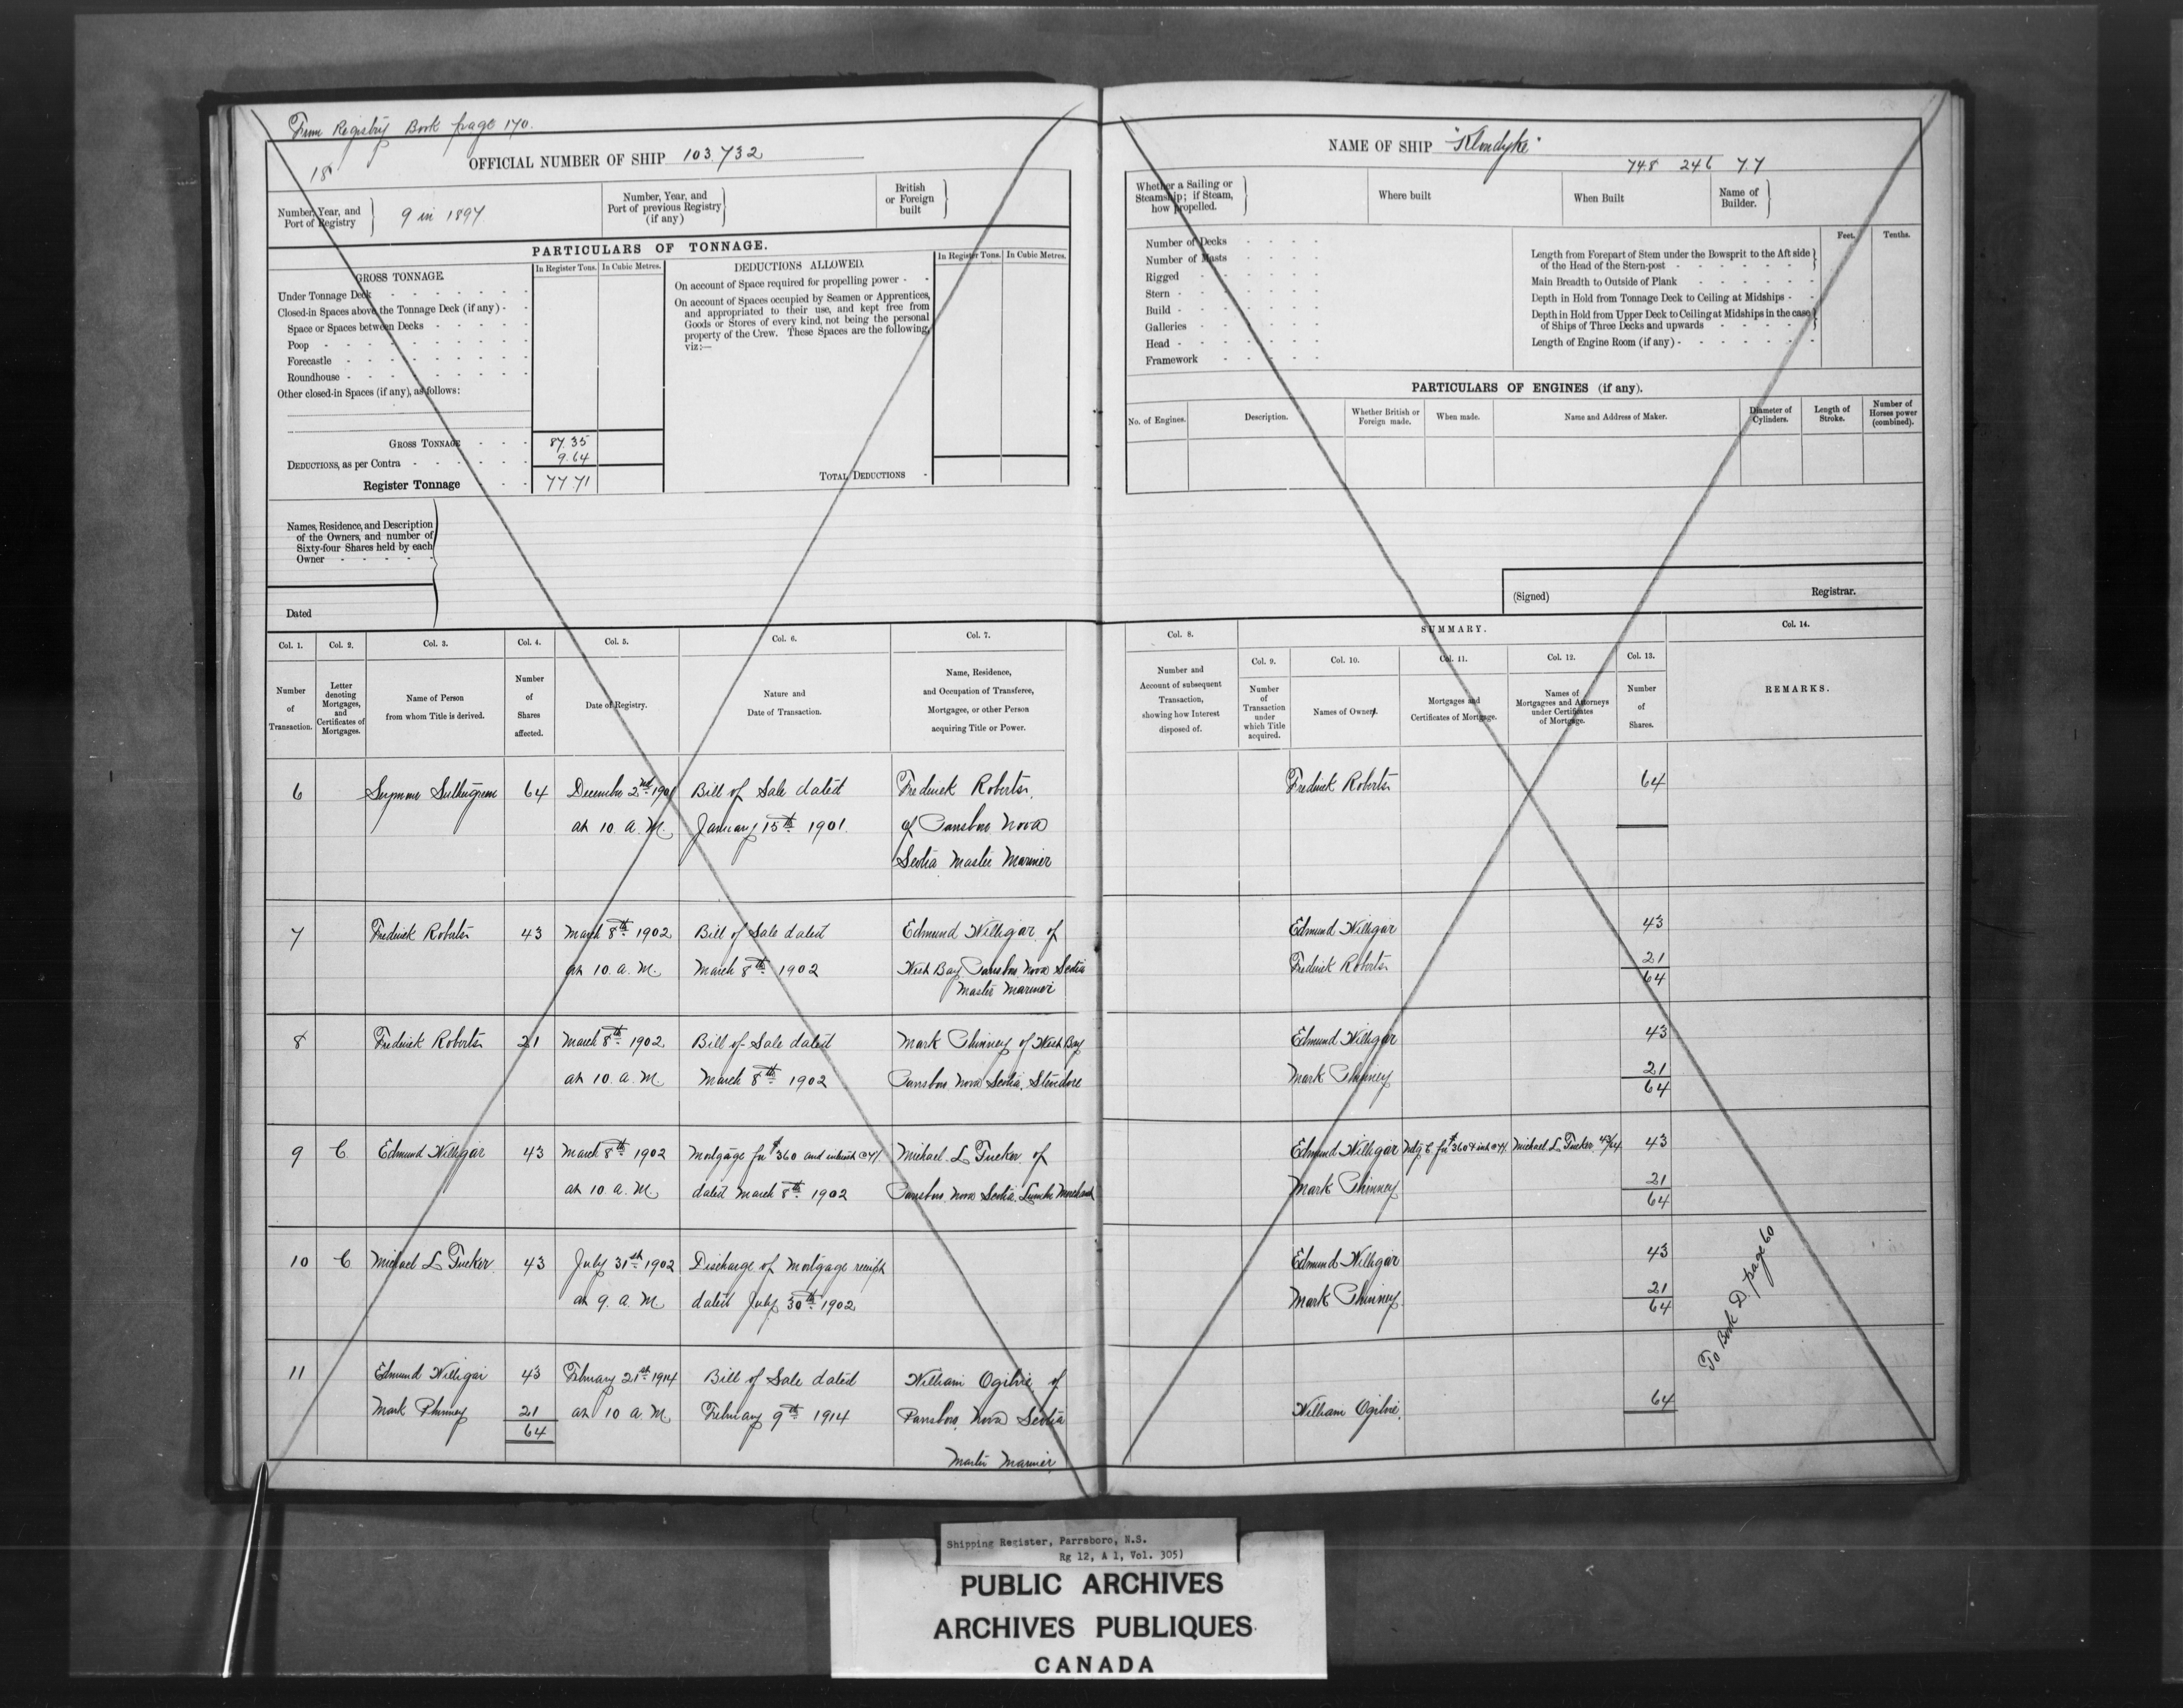 From Registry Book page 170.
18
OFFICIAL NUMBER OF SHIP 103,732
Number, Year, and Port of Registry
9 in 1897.
Number, Year, and Port of previous Registry (if any)
British or Foreign built
PARTICULARS OF TONNAGE.
GROSS TONNAGE.
In Register Tons.
In Cubic Metres.
DEDUCTIONS ALLOWED.
In Register Tons.
In Cubic Metres.
Under Tonnage Deck
Closed-in Spaces above the Tonnage Deck (if any)
Space or Spaces between Decks
Poop
Forecastle
Roundhouse
Other closed-in Spaces (if any), as follows:
On account of Space required for propelling power
On account of Spaces occupied by Seamen or Apprentices,
and appropriated to their use, and kept free from
Goods or Stores of every kind, not being the personal
property of the Crew. These Spaces are the following,
viz:—
GROSS TONNAGE 87.35
DEDUCTIONS, as per Contra 9.64
Register Tonnage 77.71
TOTAL DEDUCTIONS
Names, Residence, and Description
of the Owners, and number of
Sixty-four Shares held by each
Owner
Dated
Col. 1. Col. 2. Col. 3. Col. 4. Col. 5. Col. 6. Col. 7.
Number of Transaction.
Letter denoting Mortgages, and Certificates of Mortgages.
Name of Person from whom Title is derived.
Number of Shares affected.
Date of Registry.
Nature and Date of Transaction.
Name, Residence, and Occupation of Transferee, Mortgagee, or other Person acquiring Title or Power.
6 64 December 2nd 1901 Bill of Sale dated Frederick Roberts,
at 10 a.M. January 15th 1901. of Parrsboro Nova
Scotia Master Mariner
7 Frederick Roberts 43 March 8th 1902 Bill of Sale dated Edmund Willigar of
at 10. a. M. March 8th 1902 West Bay Parrsboro Nova Scotia
Master Mariner
8 Frederick Roberts 21 March 8th 1902 Bill of Sale dated Mark Phinney of West Bay
at 10. a. M. March 8th 1902 Parrsboro Nova Scotia, Stevedore
9 C Edmund Willigar 43 March 8th 1902 Mortgage for $360 and interest @ 7% Michael L Tucker of
at 10. a. M. dated March 8th 1902 Parrsboro, Nova Scotia. Lumber Merchant
10 C Michael L Tucker 43 July 31st 1902 Discharge of Mortgage receipt
at 9. a. M. dated July 30th 1902
11 Edmund Willigar 43 February 21st 1914 Bill of Sale dated William Ogilvie of
Mark Phinney 21 at 10 a M February 9th 1914 Parrsboro, Nova Scotia
64
Master Mariner
NAME OF SHIP "Klondyke"
74.8 24.6 7.7
Whether a Sailing or Steamship; if Steam, how propelled.
Where built
When Built
Name of Builder.
Number of Decks
Number of Masts
Rigged
Stern
Build
Galleries
Head
Framework
Feet. Tenths.
Length from Forepart of Stem under the Bowsprit to the Aft side
of the Head of the Stern-post
Main Breadth to Outside of Plank
Depth in Hold from Tonnage Deck to Ceiling at Midships
Depth in Hold from Upper Deck to Ceiling at Midships in the case
of Ships of Three Decks and upwards
Length of Engine Room (if any)
PARTICULARS OF ENGINES (if any).
No. of Engines.
Description.
Whether British or Foreign made.
When made.
Name and Address of Maker.
Diameter of Cylinders.
Length of Stroke.
Number of Horses power (combined).
(Signed) Registrar.
Col. 8. SUMMARY. Col. 14.
Col. 9. Col. 10. Col. 11. Col. 12. Col. 13.
Number and Account of subsequent Transaction, showing how Interest disposed of.
Number of Transaction under which Title acquired.
Names of Owners.
Mortgages and Certificates of Mortgage.
Names of Mortgagees and Attorneys under Certificates of Mortgage.
Number of Shares.
REMARKS.
Frederick Roberts 64
Edmund Willigar 43
Frederick Roberts 21
64
Edmund Willigar 43
Mark Phinney 21
64
Edmund Willigar Mtg C for $360 & int @ 7% Michael L Tucker 43/64 43
Mark Phinney 21
64
Edmund Willigar 43
Mark Phinney 21
64
William Ogilvie. 64
To Book D. page 60
Shipping Register, Parrsboro, N.S.
Rg 12, A 1, Vol. 305)
PUBLIC ARCHIVES
ARCHIVES PUBLIQUES
CANADA